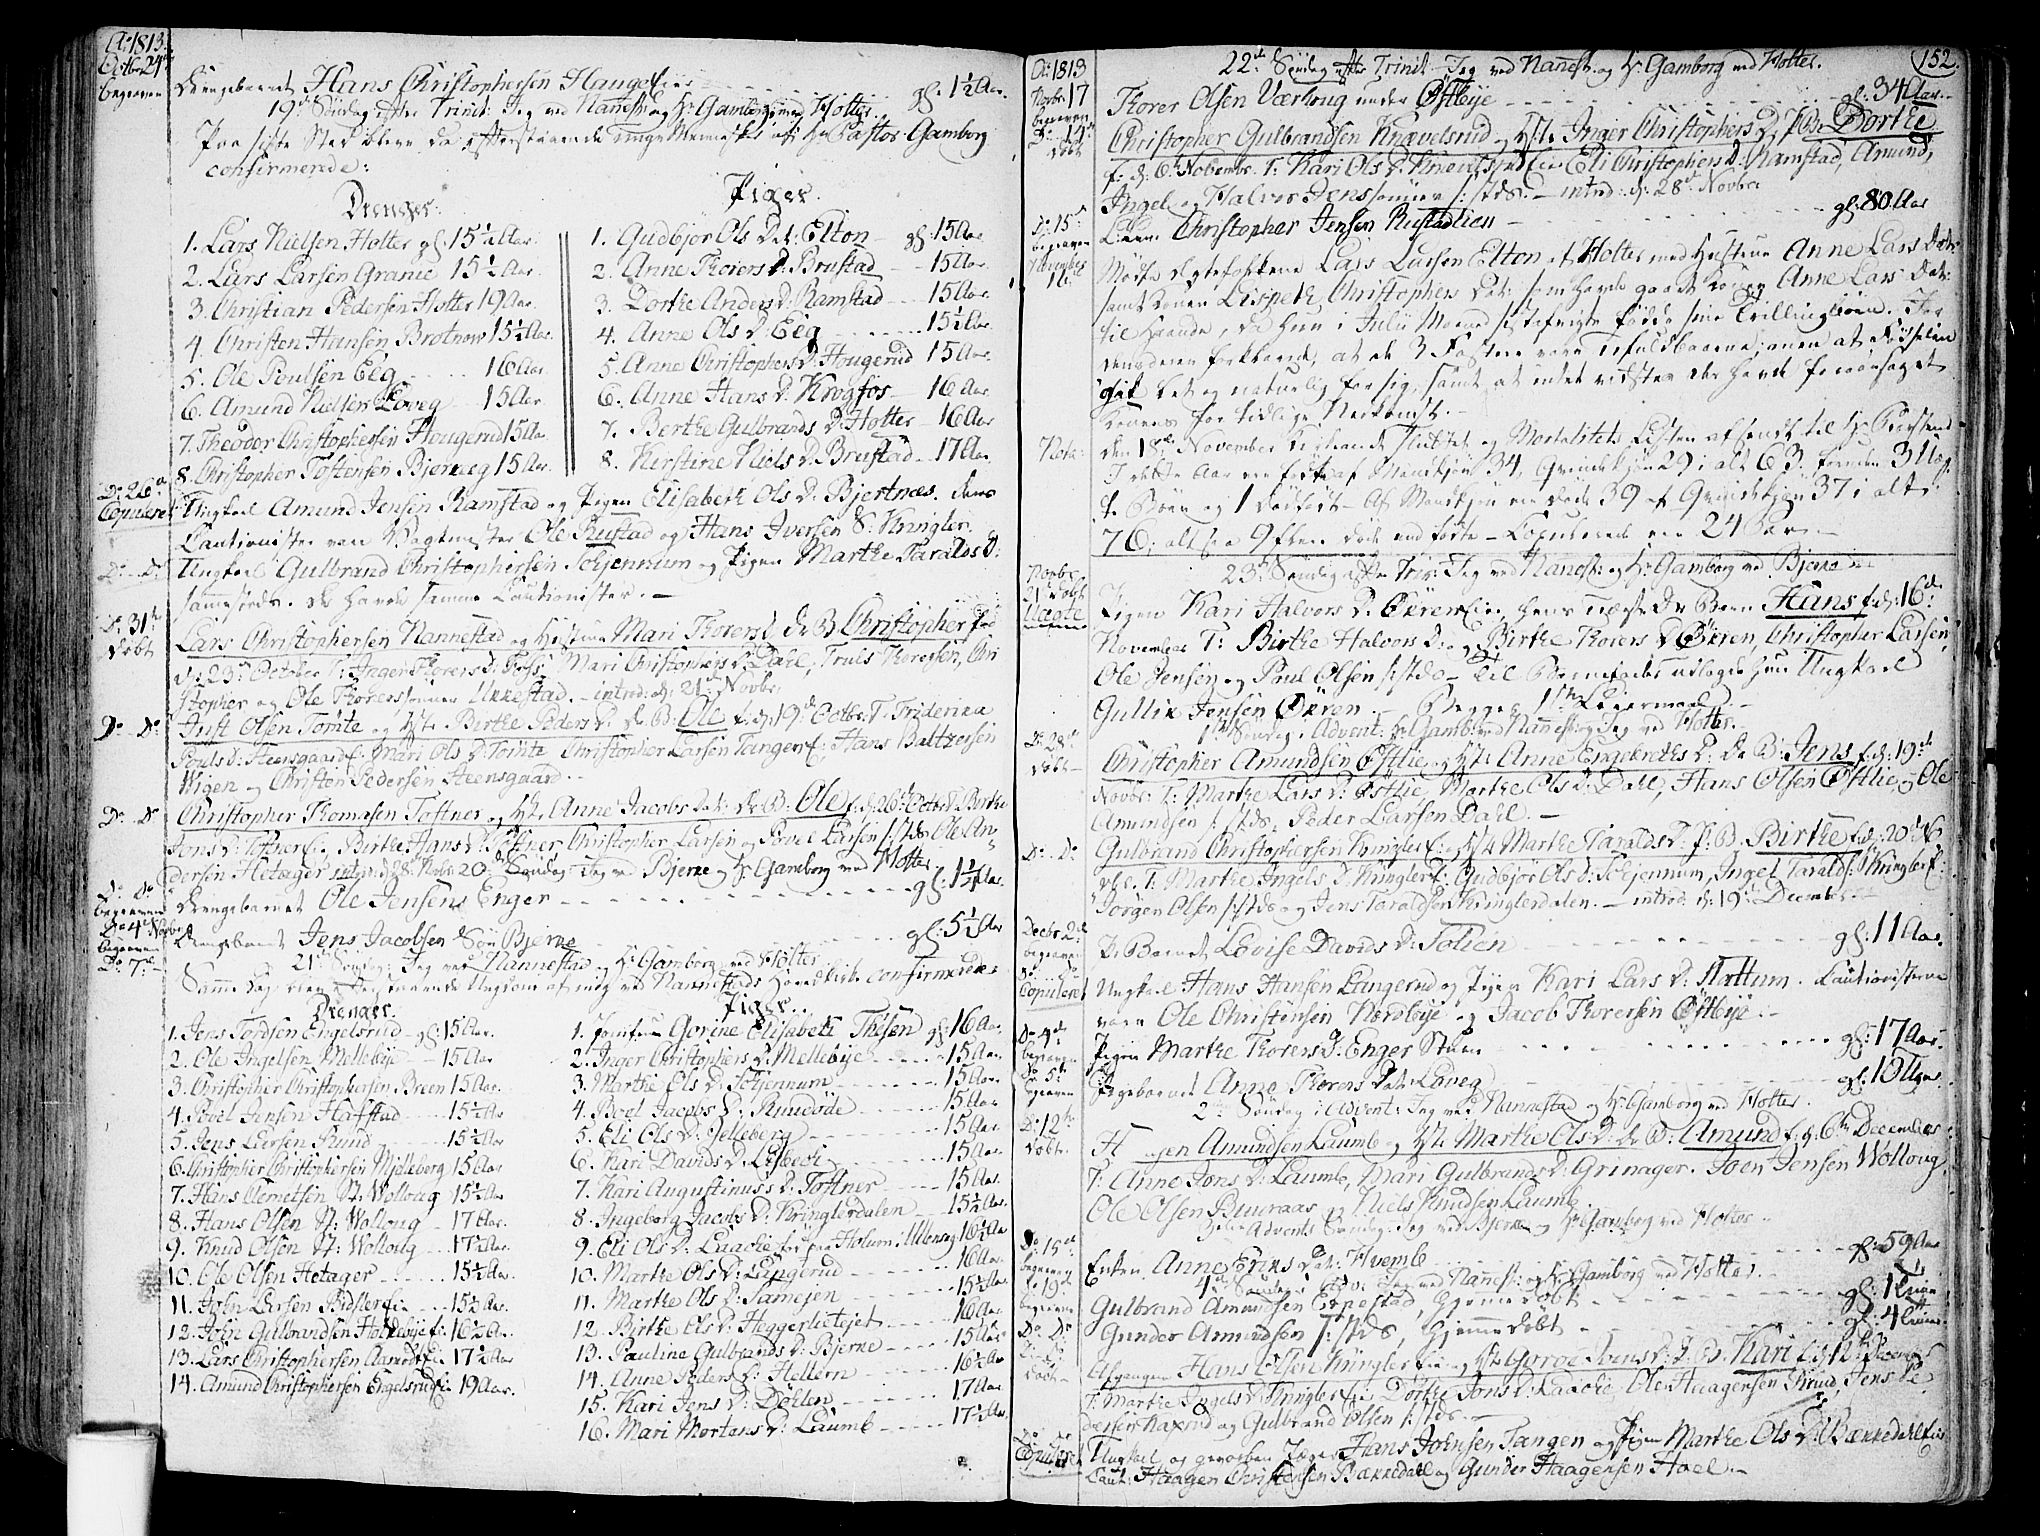 Ao 1813.
Octbr 24de
begraven
Drengebarnet Hans Christophersen Haugei gl: 1½ Aar.
19de Søndag efter Trinit: Jeg ved Nannest: og Hr Gamborg ved Holter.
Paa sidste Sted bleve da efterstaaende unge Mennesker af Hr Pastor Gamborg
confirmerede:
Drenger.
1. Lars Nielsen Holter gl: 15½ Aar.
2. Lars Larsen Granie 15½ Aar.
3. Christian Pedersen Holter 19 Aar.
4. Christen Hansen Brotnow 15½ Aar.
5. Ole Poulsen Eeg 16 Aar.
6. Amund Nielsen Løveg 15 Aar.
7. Theodor Christophersen Hougerud 15 Aar
8. Christopher Tostensen Bjerkeeg 15 Aar.
Piger.
1. Gudbjor Ols Dat: Elton gl: 15 Aar
2. Anne Thorers D: Brustad 15 Aar.
3. Dorthe Anders D: Ramstad 15 Aar.
4. Anne Ols D: Eeg 15½ Aar.
5. Anne Christophers D: Hougerud 15 Aar.
6. Anne Hans D: Krogfos 16 Aar
7. Berthe Gulbrands D: Holter 16 Aar
8. Kirstine Niels D: Brustad 17 Aar.
Do 26de
Copuleret
Ungkarl Amund Jensen Ramstad og Pigen Elisabeth Ols D: Bjertnæs. Deres
Cautionister vare Vagtmester Ole Rustad og Hans Iversen S: Kringler.
Do Do
Ungkarl Gulbrand Christophersen Schjennum og Pigen Marthe Taralds D:
sammesteds. De havde samme Cautionister.
Do 31te
Døbt
Lars Christophersen Nannestad og Hustrue Mari Thorers D: De B: Christopher fød
d: 23de October T: Inger Thorers D: Mari Christophers D: Dahl, Truls Thoresen, Chri
stopher og Ole Thorerssønner Ukkestad. introd: d: 21de Novbr.
Do Do
Just Olsen Tomte og Hst: Birthe Peders D: De B: Ole f: d: 19de Octbr. T: Friderica
Pouls D: Steensgaard, Mari Ols D: Tomte Christopher Larsen Tangen, Hans Baltzersen
Wigen og Christen Pedersen Steensgaard.
Do Do
Christopher Thomasen Toftner og Hst: Anne Jacobs Dat: De B: Ole f: d: 26de Octbr. T: Birthe
Jens D: Toftner, Birthe Hans D: Toftner, Christopher Larsen og Povel Larsen s:stds Ole An
dersen Hetager introd: d: 28de Novbr. 20de Søndag Jeg ved Bjerke og Hr Gamborg ved Holter
Do Do
begraven
Drengebarnet Ole Jensens Enger gl: 1½ Aar.
Do 4de Novbr
begraven
Drengebarnet Jens Jacobsen Søn Bjerke gl: 5½ Aar
Do 7de
21de Søndag: Jeg ved Nannestad og Hr Gamborg ved Holter
Samme Dag blev efterstaaende Ungdom af mig ved Nannestads Hovedkirke confirmerede:
Drenger.
1. Jens Tordsen Engelsrud gl: 15 Aar.
2. Ole Ingelsen Mellebye 15 Aar.
3. Christopher Christophersen Breen 15 Aar.
4. Poel Jensen Hafstad 15½ Aar
5. Jens Larsen Ruud 15½ Aar
6. Christopher Christophersen Mjelleberg 15 Aar
7. Hans Clemetsen St: Wolloug 15½ Aar
8. Hans Olsen St: Wolloug 17 Aar.
9. Knud Olsen St: Wolloug 17½ Aar.
10. Ole Olsen Hetager 15½ Aar.
11. John Larsen 15½ Aar.
12. John Gulbrandsen Holdebye 16½ Aar.
13. Lars Christophersen 17½ Aar
14. Amund Christophersen Engelsrud 19 Aar.
Piger.
1. Jomfrue Gorine Elisabeth Thesen gl: 16 Aar
2. Inger Christophers D: Mellebye 15 Aar.
3. Marthe Ols D: Schjennum 15 Aar.
4. Boel Jacobs D: Ruudøde 15 Aar
5. Eli Ols D: Jelleberg 15 Aar.
6. Kari Davids D: Lysbech 15 Aar.
7. Kari Augustinuss D: Toftner 15 Aar.
8. Ingeborg Jacobs D: Kringlerdalen 15½ Aar
9. Eli Ols D: Laache Holum Ullensag 16½ Aar
10. Marthe Ols D: Lungerud 16 Aar.
11. Marthe Ols D: Samejen 15½ Aar
12. Birthe Ols D: Heggerliehejet 16 Aar.
13. Pauline Gulbrands D: Bjerke 15 Aar
14. Anne Peders D: Hellern 16½ Aar
15. Kari Jens D: Døhlen 17 Aar
16. Mari Mortens D: Laumb 17½ Aar.
152.
Ao 1813
22de Søndag efter Trinit: Jeg ved Nannest: og Hr Gamborg ved Holter.
Novbr. 17
begraven
Thorer Olsen Værhoug under Østbye gl: 34 Aar.
Do 14de
Døbt
Christopher Gulbrandsen Knævelsrud og Hst: Inger Christophers D: P: B: Dorthe
f: d: 6te Novembr. T: Kari Ols D: Eli Christophers D: Ramstad, Amund,
Ingel og Halvor Jenssønner s:stds. introd: d: 28de Novbr.
Do 15de
begraven
Christopher Jensen Rustadlien gl: 80 Aar
November
16de
Mødte Ægtefolkene Lars Larsen Elton af Holter med Hustrue Anne Lars Datr
samt Konen Lispeth Christophers Dat: som havde gaaet Konen Anne Lars Dat:
til Haande, da hun i Julii Maaned sidstafvigte fødde sine Trillingbørn.
at de 3 Fostere vare ufuldbaarne, men at Fødselen
gik let og naturlig for sig, samt at intet vidstes der havde foraarsaget
Konens for tidlige Nedkomst.
Nota:
den 18de November Kirkeaaret sluttet og Mortalitets Listen afsendt til Hr
I dette Aar ere fødte af Mandkjøn 34, Qvindekjøn 29 i alt 63. foruden 3
Børn og 1 dødfødt. Af Mandkjøn ere døde 39 af Qvindekjøn 37 i alt
76; altsaa 9 flere døde end fødte. Copulerede ere 24 Par.
23de Søndag efter Trin: Jeg ved Nannest: og Hr Gamborg ved Bjerke
Novbr.
21de Døbt
Uægte
Pigen Kari Halvors D: Økren hendes uægte De Barn Hans f: d: 16de
November T: Birthe Halvors D: og Birthe Thorers D: Økren, Christopher Larsen,
Ole Jensen og Paul Olsen s:stds. Til Barnefader udlagde hun Ungkarl
Gullik Jensen Økren. Begges 1ste Leiermaal.
1ste Søndag i Advent: Hr Gamb: ved Nannest: og Jeg ved Holter.
Do 28de
Døbt
Christopher Amundsen Østlie og Hst: Anne Engebreths D: De B: Jens f: d: 19de
Novbr. T: Marthe Lars D: Østlie, Marthe Ols D: Dahl, Hans Olsen Østlie, og Ole
Amundsen s:stds, Peder Larsen Dahl.
Do Do
Gulbrand Christophersen Kringler og Hst: Marthe Taralds D: P: B: Birthe f: d: 20de No
vbr. T: Marthe Ingels D: Kringler Gudbjør Ols D: Schjennum, Ingel Taralds: Kringler
Jørgen Olsen s:stds og Jens Taraldsen Kringlerdalen. introd: d: 19de December.
Decbr. 2de
begraven
P: Barnet Lovise Davids D: Tolien gl: 11 Aar.
Do Do
Copuleret
Ungkarl Hans Hansen Lungerud og Pigen Kari Lars D: Nottum. Cautionisterne
vare Ole Christensen Nordbye og Jacob Thorersen Østbye.
Do 4de
begraven
Pigen Marthe Thorers D: Enger Stuen gl: 17 Aar.
Do 5te
begraven
Pigebarnet Anne Thorers Dat: Løveg gl: 10 Uger
2den Søndag i Advent: Jeg ved Nannestad og Hr Gamborg ved Holter.
Do 12te
Døbt.
Amundsen Laumb og Hst: Marthe Ols D: De B: Amund f: d: 6te December
T: Anne Jons D: Laumb, Mari Gulbrands D: Grinager. Joen Jensen Wolloug,
Ole Olsen Buuraas og Niels Knudsen Laumb.
3die Advents Søndag: Jeg ved Bjerke og Hr Gamborg ved Holter.
Do 15de
begraven
Enken Anne Eriks Dat: Hvemb gl: 59 Aar
4de Søndag i Adv: Jeg ved Nannest: og Hr Gamborg ved Holter.
Do 19de
begraven
Gulbrand Amundsen Erpestad, hjemmedøbt gl: 1
Do Do
Gunder Amundsen s:stds, hjemmedøbt gl: 4
Do Do
Døbt
Afgangne Hans Olsen Kringler og Hst: Goroe Svens D: D: B: Kari f: d: 12te December
T: Marthe Ingels D: Kringler Dorthe Jons D: Laache, Ole Haagensen Ruud, Jens Pe
dersen Naxrud og Gulbrand Olsen s:stds.
Do Do
Copuleret
Ungkarl og gevorben Jæger Hans Johnsen Tangen og Pigen Marthe Ols D: Bækkedal
Caut: Haagen Christensen Bækkedal og Gunder Haagensen Hoel.